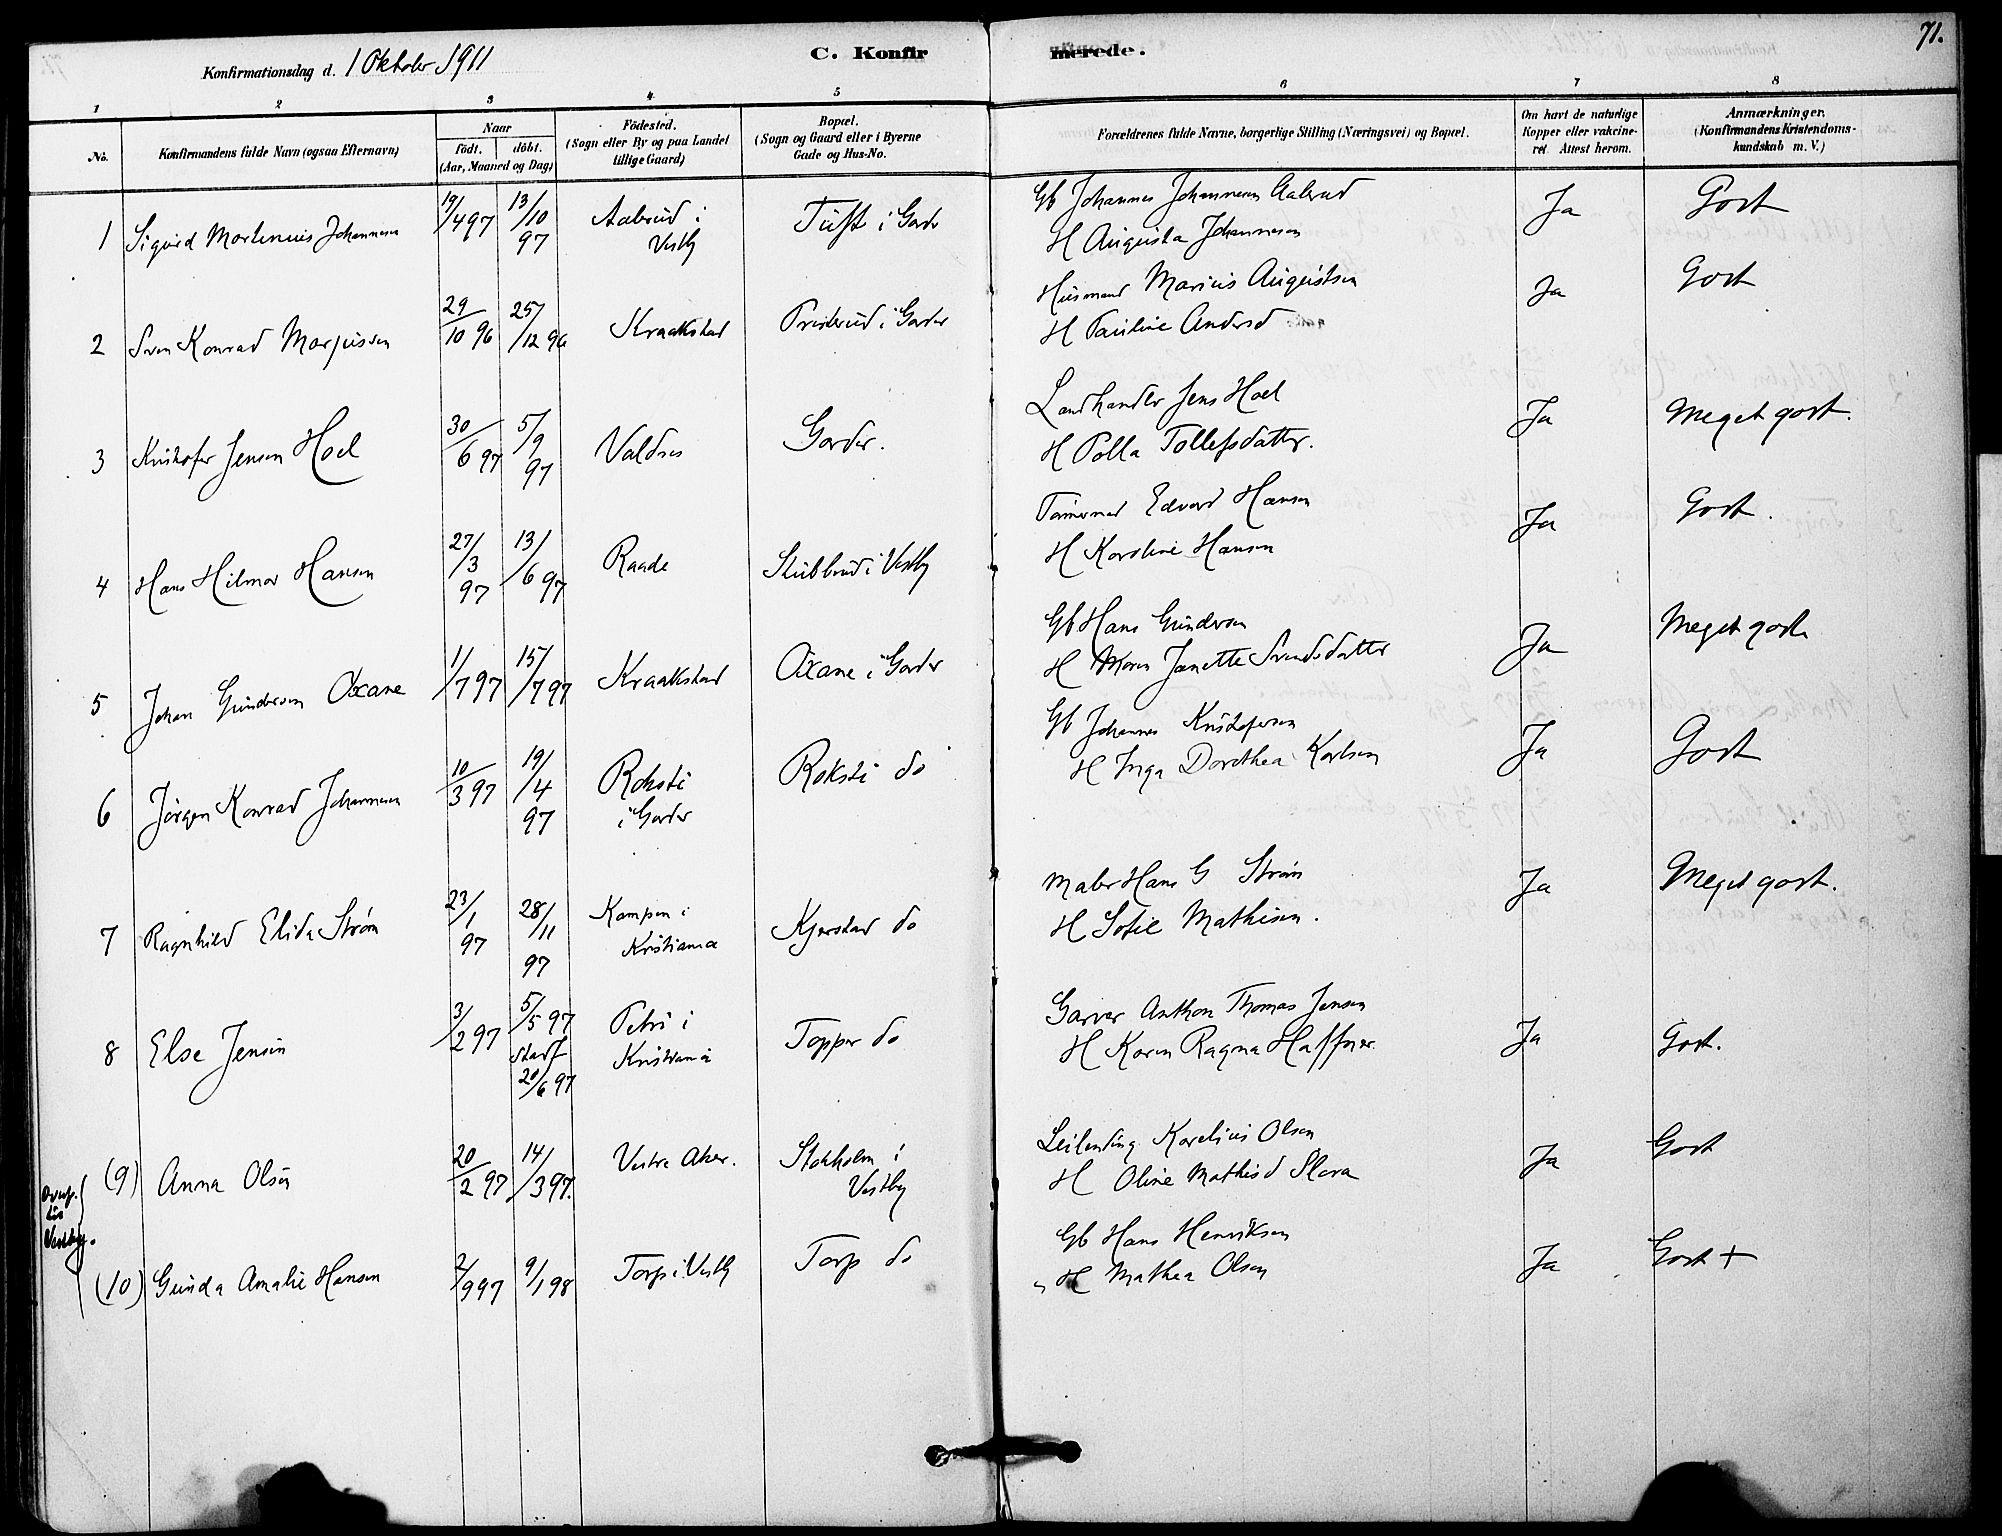 71.
Konfirmationsdag d. 1 Oktober 1911
C. Konfirmerede.
1 2 3 4 5 6 7 8
No.
Konfirmandens fulde Navn (ogsaa Efternavn)
Naar
födt. döbt.
(Aar, Maaned og Dag)
Födested.
(Sogn eller By og paa Landet
tillige Gaard)
Bopæl.
(Sogn og Gaard eller i Byerne
Gade og Hus-No.
Forældrenes fulde Navne, borgerlige Stilling (Næringsvei) og Bopæl.
Om havt de naturlige
Kopper eller vakcine-
ret. Attest herom.
Anmærkninger.
(Konfirmandens Kristendoms-
kundskab m. V.)
1 Sigurd Martinius Johannesen 19/4 97 13/10 97 Aalerud i Vestby Tuft i Garder
Gb Johannes Johannesen Aalerud
H Augusta Johannesen
Ja Godt
2 Sven Konrad Marjussen 29/10 96 25/12 96 Kraakstad Presterud i Garder
Husmand Marius Augustsen
H Pauline Andersd
Ja Godt
3 Kristofer Jensen Hoel 30/6 97 5/9 97 Valdres Garder.
Landhandler Jens Hoel
H Polla Tollefsdatter.
Ja Meget godt.
4 Hans Hilmar Hansen 27/3 97 13/6 97 Raade Stubberud i Vestby
Tømermd Edvard Hansen
H Karoline Hansen
Ja Godt.
5 Johan Gundersen Oxane 1/7 97 15/7 97 Kraakstad Oxane i Garder
Gb Hans Gundersen
H Maren Janette Svendsdatter
Ja Meget godt
6 Jørgen Konrad Johannesen 10/3 97 19/4 97 Roksti i Garder Roksti do
Gb Johannes Kristofersen
H Inga Dorothea Karlsen
Ja Godt
7 Ragnhild Elida Strøm 23/1 97 28/11 97 Kampen i Kristiania Kjerstad do
Maler Hans G Strøm
H Sofie Mathisen.
Ja Meget godt.
8 Else Jensen 3/2 97 5/5 97 stadf 20/6 97 Petri i Kristiania Topper do
Garver Anthon Thomas Jensen
H Karen Ragna Haffner
Ja Godt.
(9) Anna Olsen 20/2 97 14/3 97. Vestre Aker. Stokholm i Vestby
Leilending Karelius Olsen
H Oline Mathisd Slora
Ja Godt
overf. til Vestby.
(10) Gunda Amalie Hansen 2/9 97 9/1 98 Torp i Vestby Torp do
Gb Hans Henriksen
H Mathea Olsen
Ja Godt +